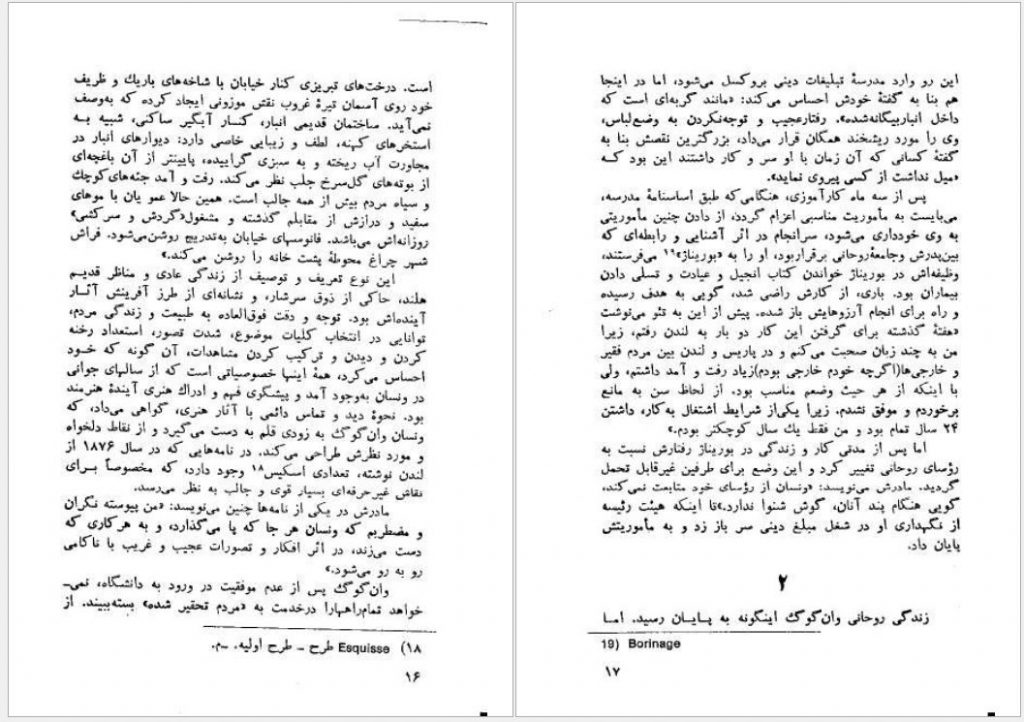 است. درخت‌های تبریزی کنار خیابان با شاخه‌های باریك و ظریف
خود روی آسمان تیرهٔ غروب نقش موزونی ایجاد کرده که به‌وصف
نمی‌آید. ساختمان قدیمی انبار، کنــار آبگیر ساکنی، شبیه بــه
استخرهای کهنه، لطف و زیبایی خاصی دارد: دیوارهای انبار در
مجاورت آب ریخته و به سبزی گراییده، پایینتر از آن باغچه‌ای
از بوته‌های گل‌سرخ جلب نظر می‌کند. رفت و آمد جثه‌های‌کوچك
و سیاه مردم بیش از همه جالب است. همین حالا عمو یان با موهای
سفید و درازش از مقابلم گذشته و مشغول«گردش و سرکشی»
روزانه‌اش می‌باشد. فانوسهای خیابان به‌تدریج روشن‌می‌شود. فراش
شهر چراغ محوطهٔ پشت خانه را روشن می‌کند.»
این نوع تعریف و توصیف از زندگی عادی و مناظر قدیـم
هلند، حاکی از ذوق سرشار، و نشانه‌ای از طرز آفرینش آثــار
آینده‌اش بود. توجه و دقت فوق‌العاده به طبیعت و زندگی مردم،
توانایی در انتخاب کلیات موضوع، شدت تصور، استعداد رخنه
کردن و دیدن و ترکیب کردن مشاهدات، آن گونه که خــود
احساس می‌کرد، همهٔ اینها خصوصیاتی است که از سالهای جوانی
در ونسان به‌وجود آمد و پیشگوی فهم و ادراك هنری آیندهٔ هنرمند
بود. نحوهٔ دید و تماس دائمی با آثار هنری، گواهی می‌داد، که
ونسان وان‌گوگ به زودی قلم به دست می‌گیرد و از نقاط دلخواه
و مورد نظرش طراحی می‌کند. در نامه‌هایی که در سال ۱۸۷۶ از
لندن نوشته، تعدادی اسکیس۱۸ وجود دارد، که مخصوصاً بــرای
نقاش غیرحرفه‌ای بسیار قوی و جالب به نظر می‌رسد.
مادرش در یکی از نامه‌ها چنین می‌نویسد: «من پیوسته نگران
و مضطربم که ونسان هر جا که پا می‌گذارد، و به هرکاری که
دست می‌زند، در اثر افکار و تصورات عجیب و غریب با ناکامی
رو به رو می‌شود.»
وان‌گوگ پس از عدم موفقیت در ورود به دانشگاه، نمی‌ـ
خواهد تمام‌راهها‌را درخدمت به «مردم تحقیر شده» بسته‌ببیند. از
۱۸) Esquisse طرح ـ طرح اولیه. ـم.
۱۶
این رو وارد مدرسهٔ تبلیغات دینی بروکسل می‌شود، اما در اینجا
هم بنا به گفتهٔ خودش احساس می‌کند: «مانند گربه‌ای است که
داخل انباربیگانه‌شده». رفتارعجیب و توجه‌نکردن به وضع‌لباس،
وی را مورد ریشخند همگان قرار می‌داد، بزرگترین نقصش بنا به
گفتهٔ کسانی که آن زمان با او سر و کار داشتند این بود کــه
«میل نداشت از کسی پیروی نماید.»
پس از سه ماه کارآموزی، هنگامی‌که طبق اساسنامهٔ مدرسه،
می‌بایست به مأموریت مناسبی اعزام گردد، از دادن چنین مأموریتی
به وی خودداری می‌شود، سرانجام در اثر آشنایی و رابطه‌ای که
بین‌پدرش وجامعهٔ‌روحانی برقراربود، او را به «بوریناژ»۱۹ می‌فرستند،
وظیفه‌اش در بوریناژ خواندن کتاب انجیل و عیادت و تسلی دادن
بیماران بود. باری، از کارش راضی شد، گویی به هدف رسیده
و راه برای انجام آرزوهایش باز شده. پیش از این به تئو می‌نوشت
«هفتهٔ گذشته برای گرفتن این کار دو بار به لندن رفتم، زیرا
من به چند زبان صحبت می‌کنم و در پاریس و لندن بین مردم فقیر
و خارجی‌ها(اگرچه خودم خارجی بودم)زیاد رفت و آمد داشتم، ولی
با اینکه از هر حیث وضعم مناسب بود. از لحاظ سن به مانع
برخوردم و موفق نشدم. زیرا یکی‌از شرایط اشتغال به‌کار، داشتن
۲۴ سال تمام بود و من فقط یك سال کوچکتر بودم.»
اما پس از مدتی کار و زندگی در بوریناژ رفتارش نسبت به
رؤسای روحانی تغییر کرد و این وضع برای طرفین غیرقابل تحمل
گردید. مادرش می‌نویسد: «ونسان از رؤسای خود متابعت نمی‌کند،
گویی هنگام پند آنان، گوش شنوا ندارد.»تا اینکه هیئت رئیسه
از نگهداری او در شغل مبلغ دینی سر باز زد و به مأموریتش
پایان داد.
۲
زندگی روحانی وان‌گوگ اینگونه به پــایــان رسید. امــا
19) Borinage
۱۷